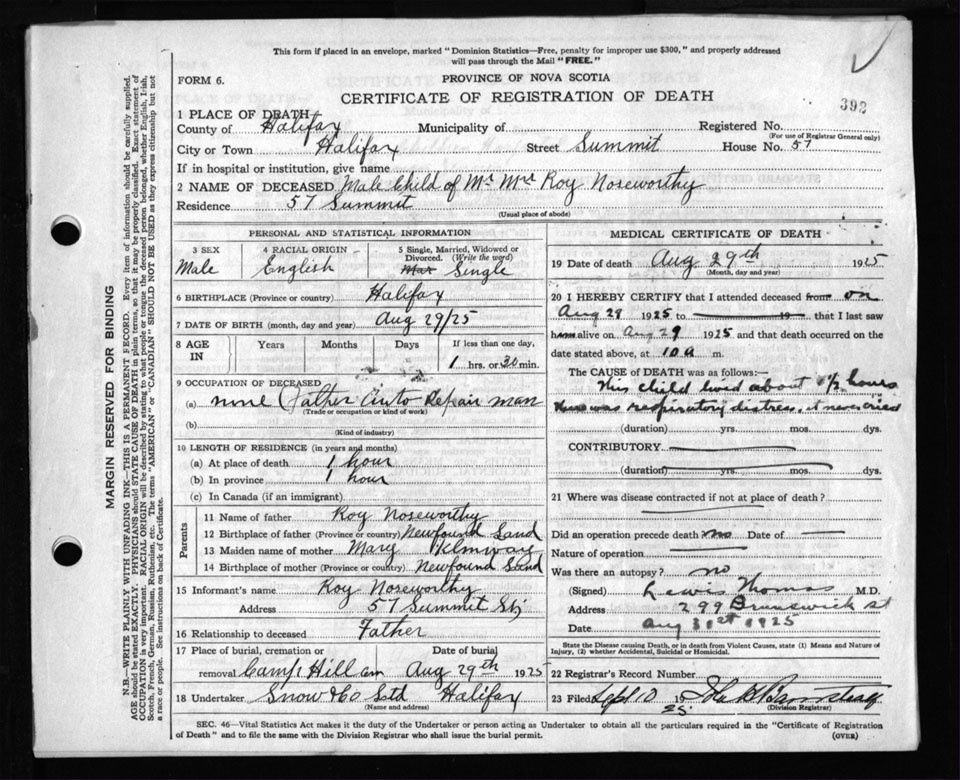 This form if placed in an envelope, marked "Dominion Statistics—Free, penalty for improper use $300," and properly addressed
will pass through the Mail "FREE."
FORM 6.
PROVINCE OF NOVA SCOTIA
CERTIFICATE OF REGISTRATION OF DEATH
392
1 PLACE OF DEATH
County of Halifax Municipality of Registered No.
(For use of Registrar General only)
City or Town Halifax Street Summit House No. 57
If in hospital or institution, give name
2 NAME OF DECEASED Male Child of Mr Mrs Roy Noseworthy
Residence 57 Summit
(Usual place of abode)
PERSONAL AND STATISTICAL INFORMATION
3 SEX
Male
4 RACIAL ORIGIN
English
5 Single, Married, Widowed or
Divorced. (Write the word)
Single
6 BIRTHPLACE (Province or country) Halifax
7 DATE OF BIRTH (month, day and year) Aug 29/25
8 AGE IN Years Months Days If less than one day,
1 hrs. or 30 min.
9 OCCUPATION OF DECEASED
(a) none (Father Auto Repair man
(Trade or occupation or kind of work)
(b)
(Kind of industry)
10 LENGTH OF RESIDENCE (in years and months)
(a) At place of death 1 hour
(b) In province 1 hour
(c) In Canada (if an immigrant)
Parents
11 Name of father Roy Noseworthy
12 Birthplace of father (Province or country) Newfound Land
13 Maiden name of mother Mary
14 Birthplace of mother (Province or country) Newfound Land
15 Informant's name Roy Noseworthy
Address 57 Summit St
16 Relationship to deceased Father
17 Place of burial, cremation or Date of burial
removal Camp Hill Cem Aug 29th 1925
18 Undertaker Snow & Co Ltd Halifax
(Name and address)
MEDICAL CERTIFICATE OF DEATH
19 Date of death Aug 29th 1925
(Month, day and year)
20 I HEREBY CERTIFY that I attended deceased from on
Aug 29 1925 to 19 that I last saw
him alive on Aug 29 1925 and that death occurred on
date stated above, at 10 a m.
The CAUSE of DEATH was as follows:—
This child lived about 1 1/2 hours
There was respiratory distress, it never cried
(duration) yrs. mos. dys.
CONTRIBUTORY
(duration) yrs. mos. dys.
21 Where was disease contracted if not at place of death?
Did an operation precede death no Date of
Nature of operation
Was there an autopsy? no
(Signed) Lewis Thomas M.D.
Address 299 Brunswick St
Date Aug 31st 1925
State the Disease causing Death, or in death from Violent Causes, state (1) Means and Nature of
Injury, (2) whether Accidental, Suicidal or Homicidal.
22 Registrar's Record Number
23 Filed Sept 10 19 25
(Division Registrar)
SEC. 46—Vital Statistics Act makes it the duty of the Undertaker or person acting as Undertaker to obtain all the particulars required in the "Certificate of Registration
of Death" and to file the same with the Division Registrar who shall issue the burial permit.
(OVER)
MARGIN RESERVED FOR BINDING
N.B.—WRITE PLAINLY WITH UNFADING INK—THIS IS A PERMANENT RECORD. Every item of information should be carefully supplied.
AGE should be stated EXACTLY. PHYSICIANS should STATE CAUSE OF DEATH in plain terms, so that it may be properly classified. Exact statement of
OCCUPATION is very important. RACIAL ORIGIN will be described by stating to what people or tongue the deceased person belonged, whether English, Irish,
Scotch, French, German, Russian, Ruthenian, etc. The terms "AMERICAN" or "CANADIAN" SHOULD NOT BE USED as they express citizenship but not
a race or people. See instructions on back of Certificate.